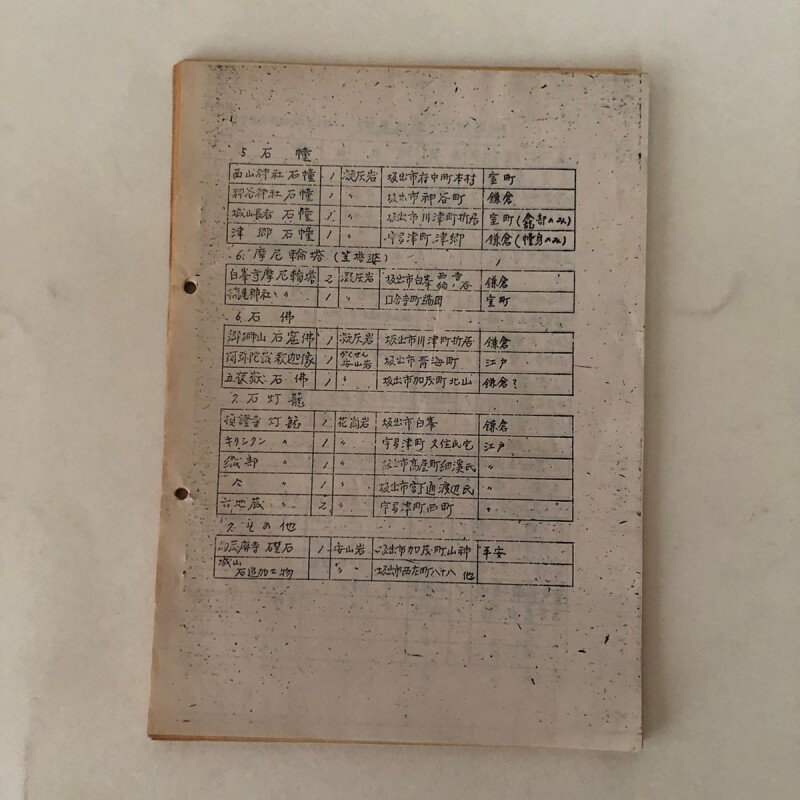 5 石 幢
西山神社 石幢 1 凝灰岩 坂出市府中町本村 室町
神谷神社 石幢 1 〃 坂出市神谷町 鎌倉
城山長者 石幢 1 〃 坂出市川津町折居 室町(龕部のみ)
津郷 石幢 1 〃 宇多津町 津郷 鎌倉(幢身のみ)
6. 摩尼輪塔 (笠塔婆)
白峯寺摩尼輪塔 2 凝灰岩 坂出市白峯 鎌倉
神社 〃 1 〃 室町
6. 石 佛
石窟佛 1 凝灰岩 坂出市川津町折居 鎌倉
阿弥陀 釈迦像 1 安山岩 坂出市青海町 江戸
五夜嶽 石佛 1 〃 坂出市加茂町北山 鎌倉?
7. 石灯籠
頓證寺 灯籠 1 花崗岩 坂出市白峯 鎌倉
キリシタン 〃 1 〃 宇多津町 久住氏宅 江戸
織部 〃 1 〃 坂出市高屋町細渓氏 〃
〃 1 〃 坂出市 渡辺氏 〃
六地蔵 〃 2 〃 宇多津町西町 〃
7. その他
礎石 1 安山岩 坂出市加茂町山神 平安
城山
石造加工物 〃 〃 坂出市西庄町八十八 他